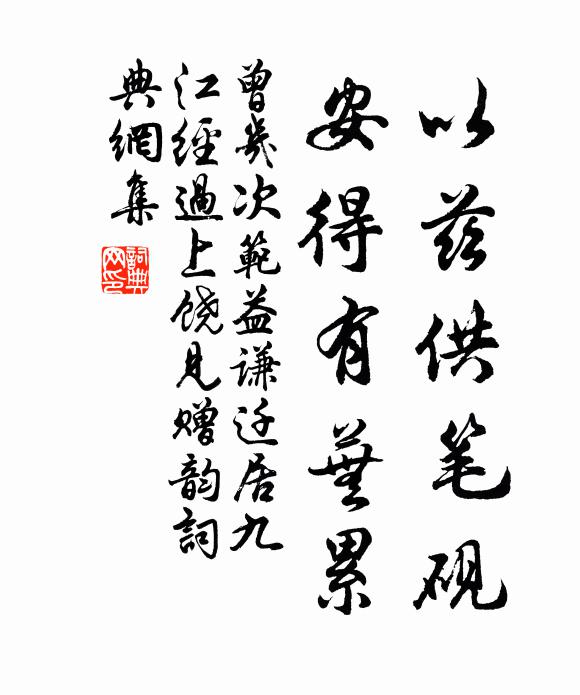 以兹供笔砚
安得有無累
曾幾次範益謙迁居九
江經過上饶見赠韵詞
典網集
詞典网印